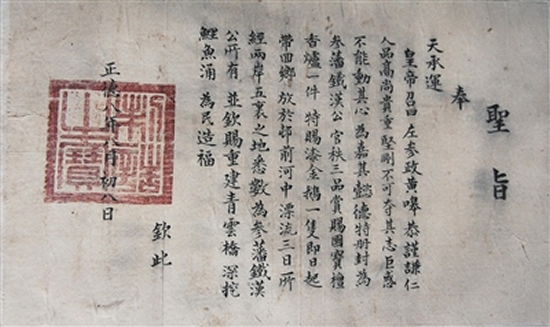 聖旨
奉
天承運
皇帝召曰左參政黃嘷恭謹謙仁
人品高尚貴重堅剛不可夺其志巨惑
不能動其心為嘉其懿德特册封為
參藩鐵漢公官秩三品賞賜國寶檀
香爐一件特賜漆金鵝一隻即日起
帶回鄉放於邨前河中漂流三日所
經兩岸五裏之地悉數為參藩鐵漢
公所有並欽賜重建青雲橋深挖
鯉魚涌為民造福
欽此
正德八年八月初八日
制誥
之寶